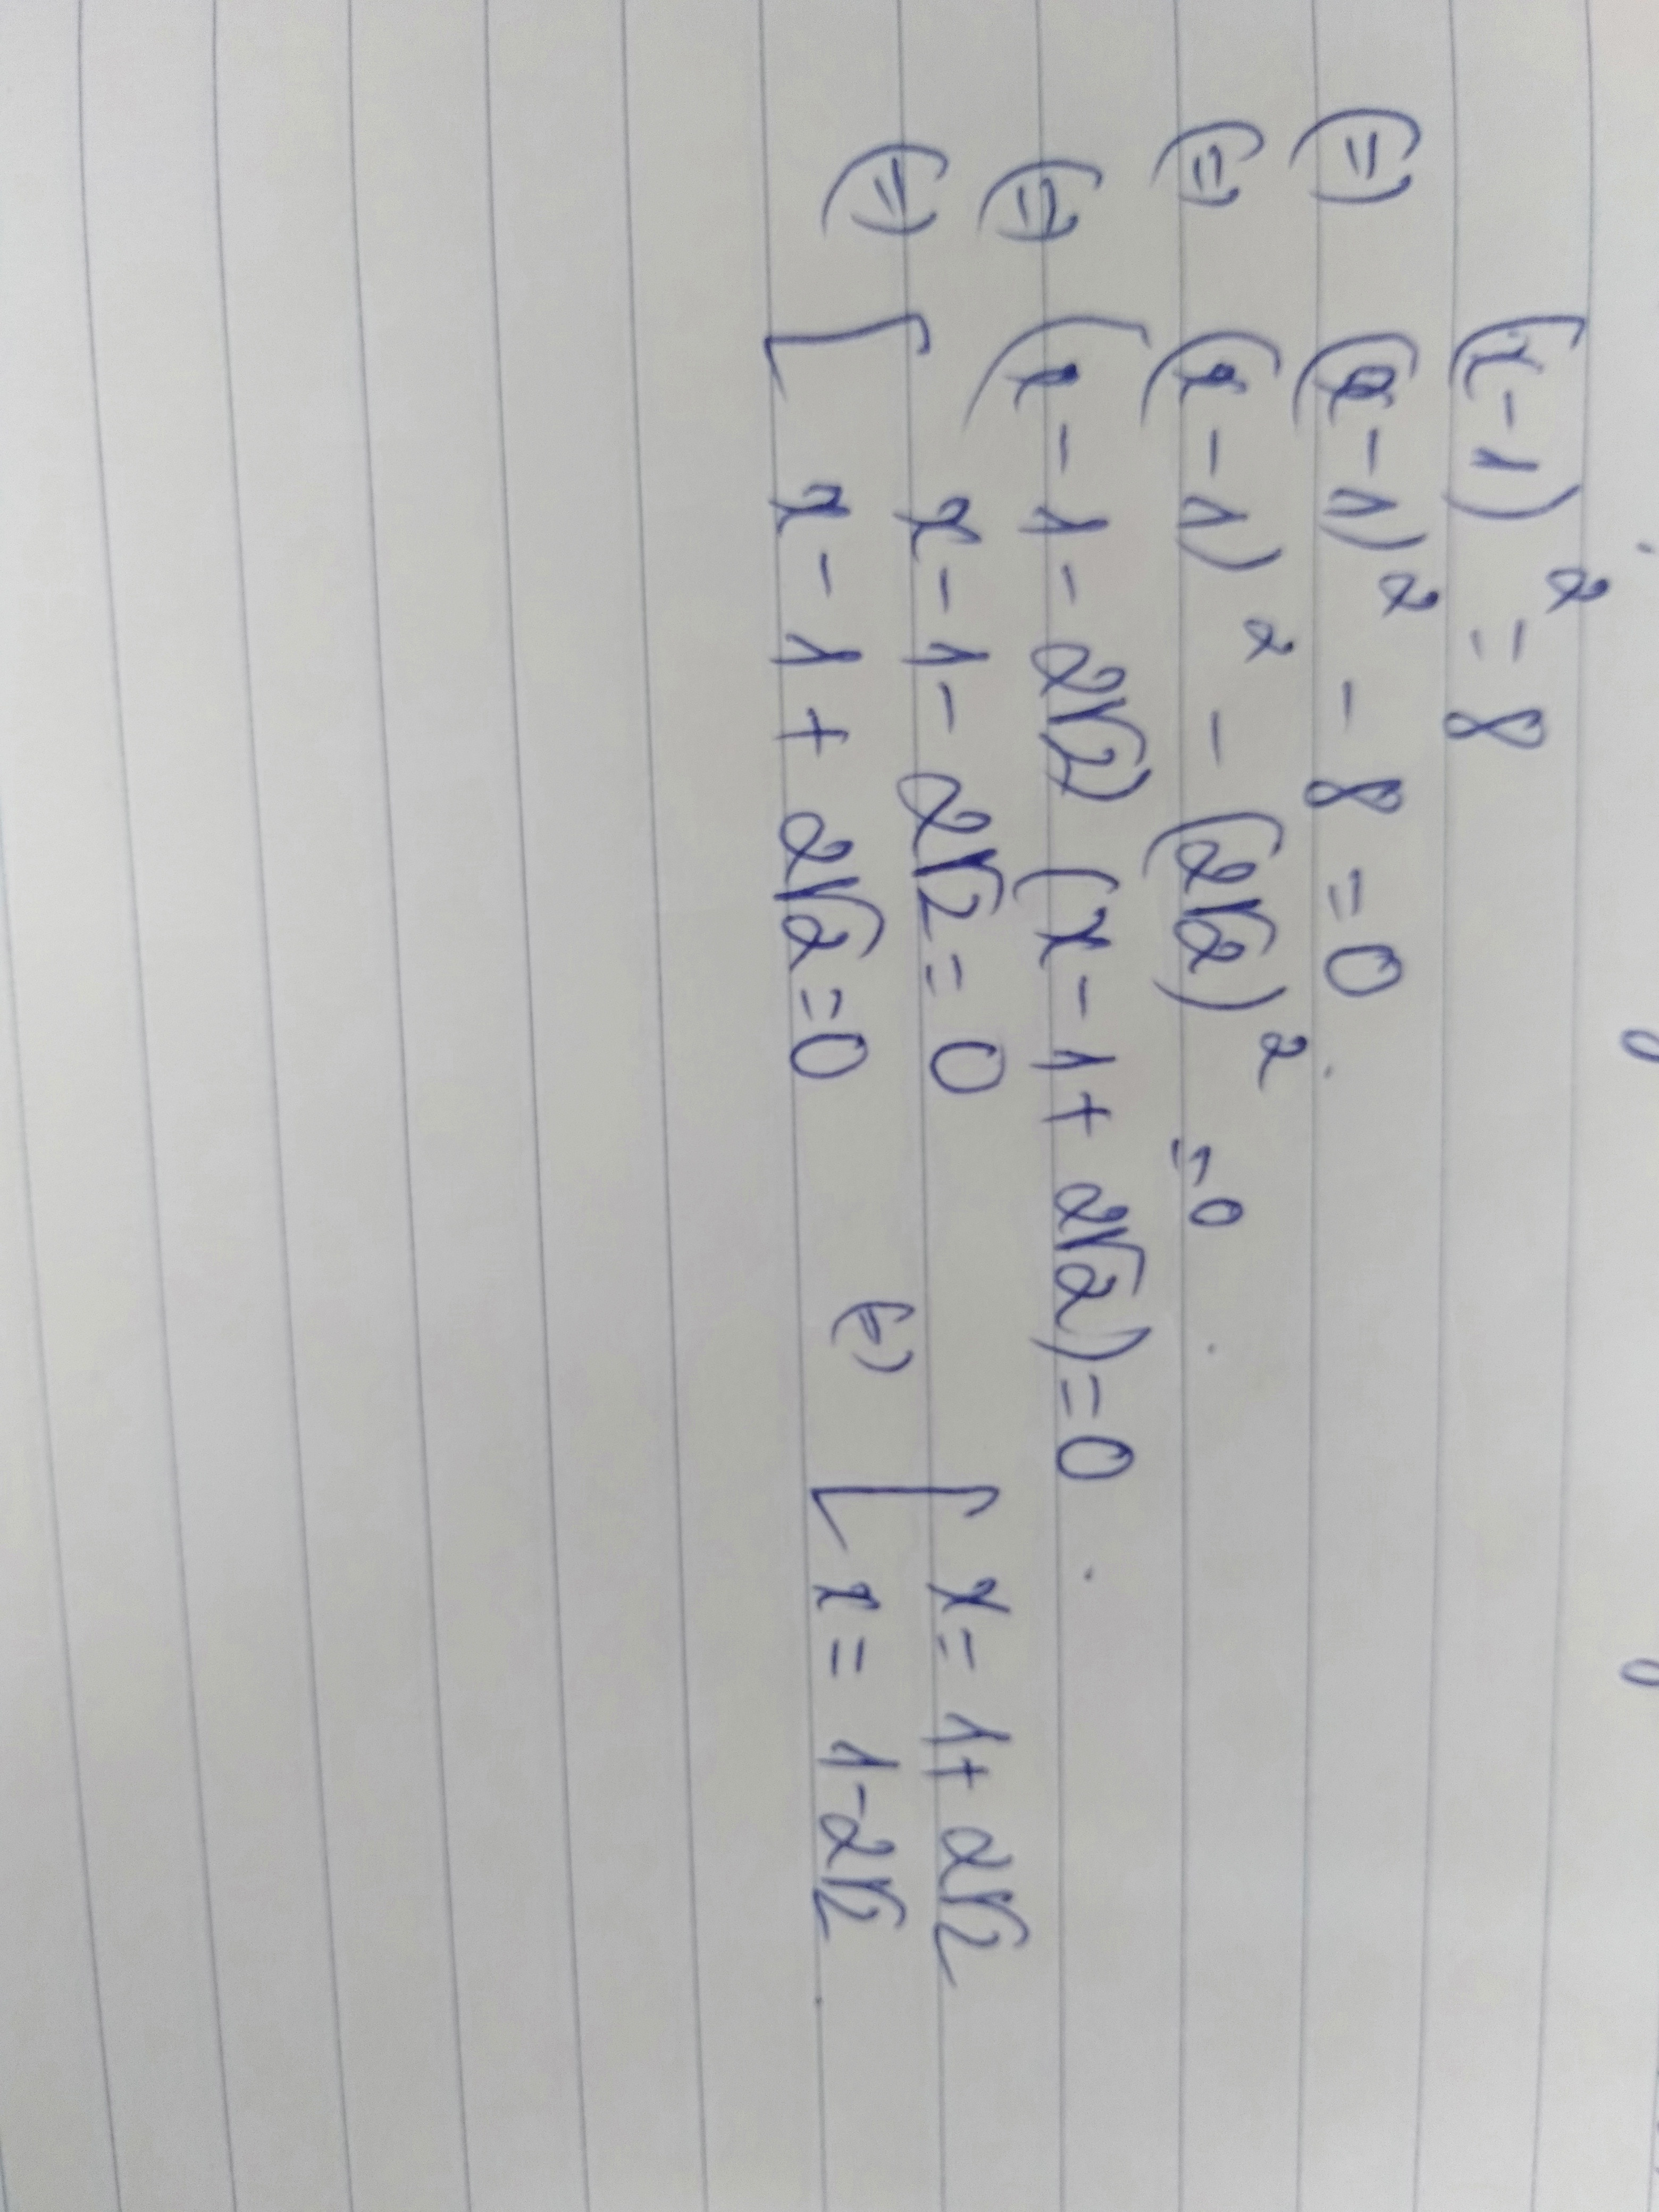 (x-1)² = 8
(=) (x-1)² - 8 = 0
(=) (x-1)² - (2√2)² = 0
(=) (x-1-2√2) (x-1+2√2) = 0
(=) [ x-1-2√2 = 0 (=) [ x = 1+2√2
x-1+2√2 = 0 x = 1-2√2